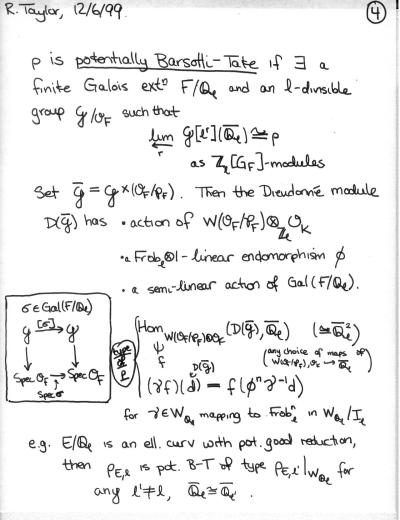 R. Taylor, 12/6/99.
④
ρ is potentially Barsotti-Tate if ∃ a
finite Galois extⁿ F/ℚ_ℓ and an ℓ-divisible
group 𝒢/𝒪_F such that
lim 𝒢[ℓ^r](ℚ̄_ℓ) ≅ ρ
←r
as ℤ_ℓ[G_F]-modules
Set 𝒢̄ = 𝒢 × (𝒪_F/℘_F). Then the Dieudonné module
D(𝒢̄) has • action of W(𝒪_F/℘_F)⊗_{ℤ_ℓ} 𝒪_K
• a Frob_ℓ⊗1 - linear endomorphism ϕ
• a semi-linear action of Gal(F/ℚ_ℓ).
σ∈Gal(F/ℚ_ℓ)
𝒢 [σ]→ 𝒢
↓ ↓
Spec 𝒪_F → Spec 𝒪_F
Spec σ
type of ρ
Hom_{W(𝒪_F/℘_F)⊗𝒪_K} (D(𝒢̄), ℚ̄_ℓ) (≅ ℚ̄_ℓ²)
(any choice of maps of W(𝒪_F/℘_F), 𝒪_K → ℚ̄_ℓ)
f D(𝒢̄)
(γf)(d) = f(ϕⁿγ⁻¹d)
for γ∈W_{ℚ_ℓ} mapping to Frob_ℓⁿ in W_{ℚ_ℓ}/I_ℓ
e.g. E/ℚ_ℓ is an ell. curv with pot. good reduction,
then ρ_{E,ℓ} is pot. B-T of type ρ_{E,ℓ'}|_{W_{ℚ_ℓ}} for
any ℓ'≠ℓ, ℚ̄_ℓ ≅ ℚ̄_ℓ'.